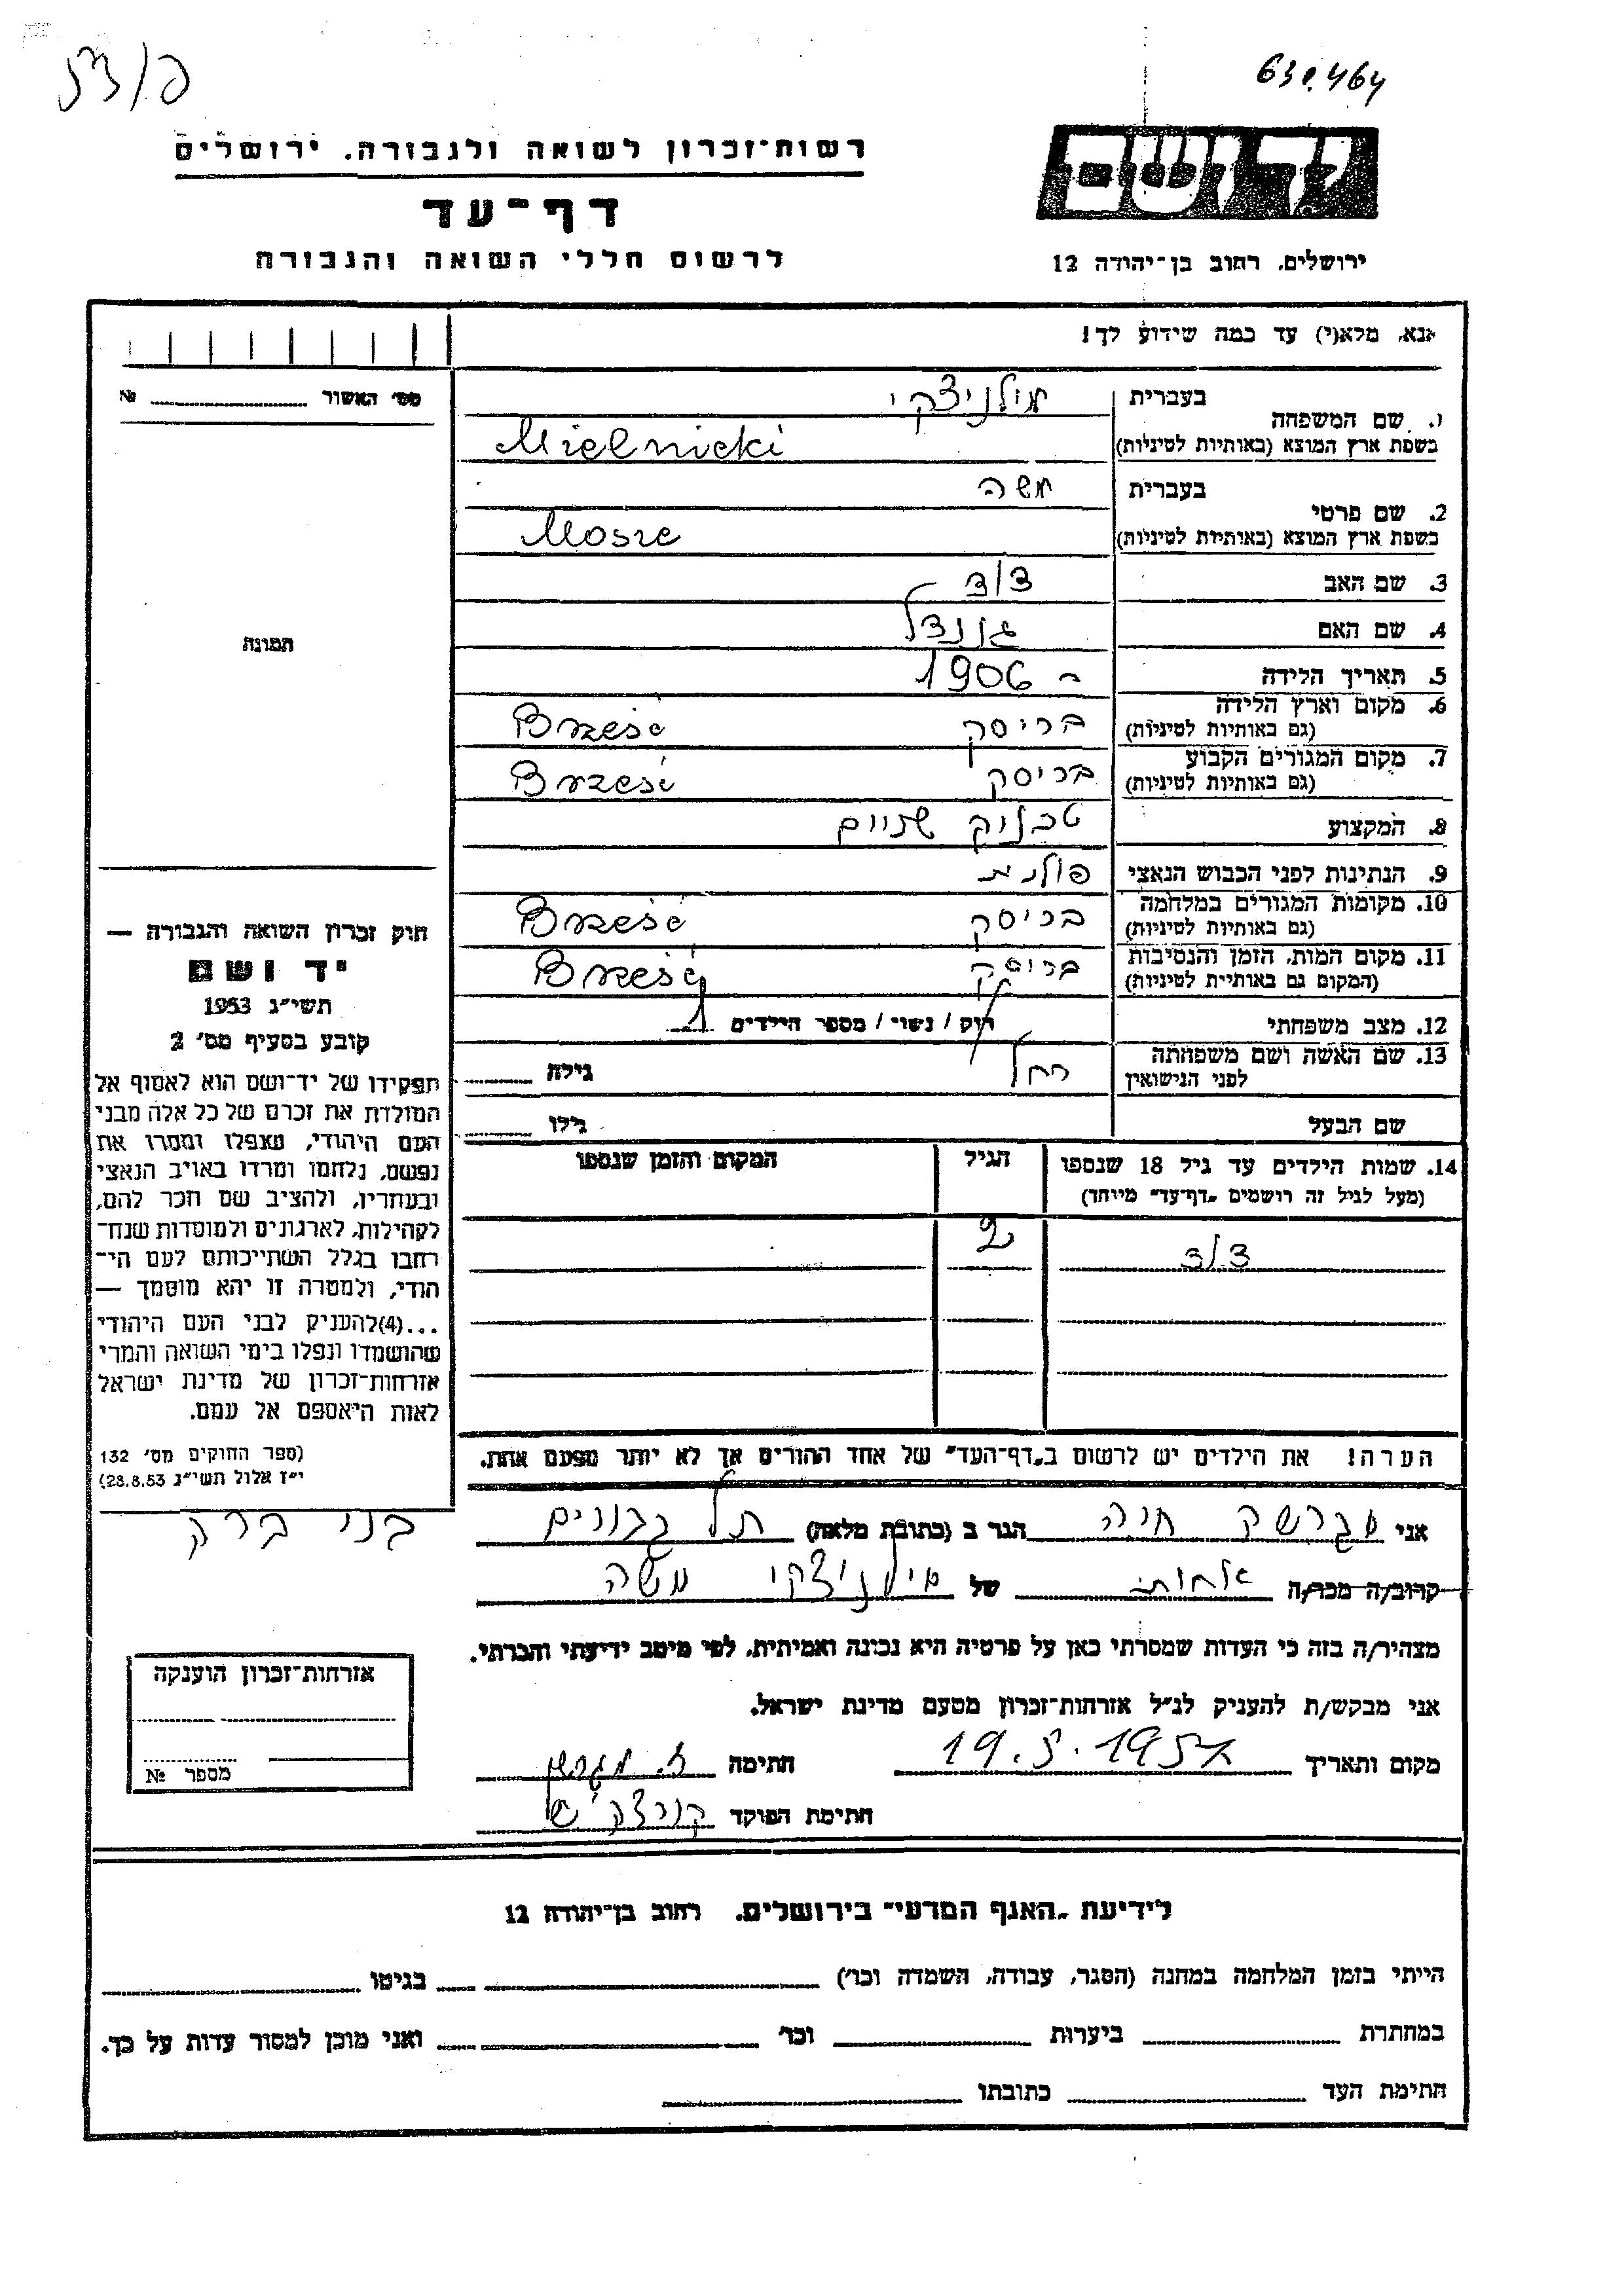 רשות־זכרון לשואה ולגבורה, ירושלים
דף־עד
לרשום חללי השואה והגבורה
ירושלים, רחוב בן־יהודה 12
אנא, מלא(י) עד כמה שידוע לך!
מס׳ האשור №
1. שם המשפחה בעברית מילניצקי
בשפת ארץ המוצא (באותיות לטיניות) Mielnicki
2. שם פרטי בעברית משה
בשפת ארץ המוצא (באותיות לטיניות) Mosze
3. שם האב
4. שם האם
5. תאריך הלידה ב־ 1906
6. מקום וארץ הלידה (גם באותיות לטיניות) בריסק Brześć
7. מקום המגורים הקבוע (גם באותיות לטיניות) בריסק Brześć
8. המקצוע טכניק שניים
9. הנתינות לפני הכבוש הנאצי פולנית
10. מקומות המגורים במלחמה (גם באותיות לטיניות) בריסק Brześć
11. מקום המות, הזמן והנסיבות (המקום גם באותיות לטיניות) בריסק Brześć
12. מצב משפחתי רווק / נשוי / מספר הילדים 1
13. שם האשה ושם משפחתה לפני הנישואין רחל גילה
שם הבעל גילו
14. שמות הילדים עד גיל 18 שנספו (מעל לגיל זה רושמים „דף־עד״ מיוחד) הגיל המקום והזמן שנספו
2
הערה! את הילדים יש לרשום ב„דף־העד״ של אחד ההורים אך לא יותר מפעם אחת.
תמונה
חוק זכרון השואה והגבורה —
יד ושם
תשי״ג 1953
קובע בסעיף מס׳ 2
תפקידו של יד־ושם הוא לאסוף אל
המולדת את זכרם של כל אלה מבני
העם היהודי, שנפלו ומסרו את
נפשם, נלחמו ומרדו באויב הנאצי
ובעוזריו, ולהציב שם וזכר להם,
לקהילות, לארגונים ולמוסדות שנח־
רבו בגלל השתייכותם לעם הי־
הודי, ולמטרה זו יהא מוסמך —
...(4)להעניק לבני העם היהודי
שהושמדו ונפלו בימי השואה והמרי
אזרחות־זכרון של מדינת ישראל
לאות היאספם אל עמם.
(ספר החוקים מס׳ 132
י״ז אלול תשי״ג 28.8.53)
אני חיה הגר ב (כתובת מלאה) תל גבורים בני ברק
קרוב/ה מכר/ה אחות של מילניצקי משה
מצהיר/ה בזה כי העדות שמסרתי כאן על פרטיה היא נכונה ואמיתית, לפי מיטב ידיעתי והכרתי.
אני מבקש/ת להעניק לנ״ל אזרחות־זכרון מטעם מדינת ישראל.
מקום ותאריך 19.5.1957 חתימה
חתימת הפוקד
אזרחות־זכרון הוענקה
מספר №
לידיעת „האגף המדעי״ בירושלים, רחוב בן־יהודה 12
הייתי בזמן המלחמה במחנה (הסגר, עבודה, השמדה וכו׳) בגיטו
במחתרת ביערות וכו׳ ואני מוכן למסור עדות על כך.
חתימת העד כתובתו